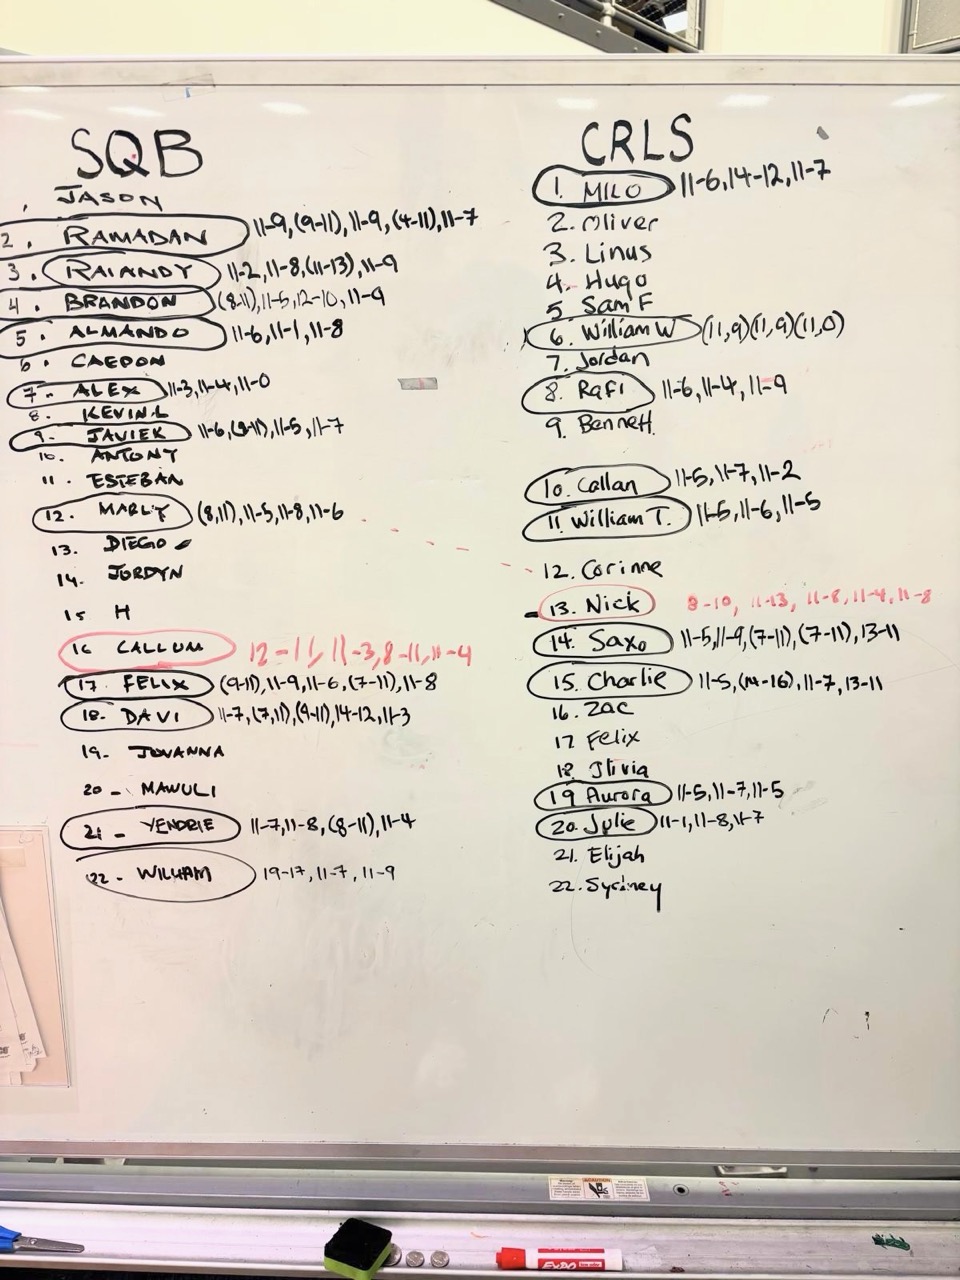 SQB
1. JASON
2. RAMADAN 11-9, (9-11), 11-9, (4-11), 11-7
3. RAIANDY 11-2, 11-8, (11-13), 11-9
4. BRANDON (8-11), 11-5, 12-10, 11-9
5. ALMANDO 11-6, 11-1, 11-8
6. CAEDON
7- ALEX 11-3, 11-4, 11-0
8. KEVIN L
9- JAVIER 11-6, (9-11), 11-5, 11-7
10. ANTONY
11. ESTEBAN
12. MARLY (8,11), 11-5, 11-8, 11-6
13. DIEGO
14. JORDYN
15 H
16 CALLUM 12-11, 11-3, 8-11, 11-4
17. FELIX (9-11), 11-9, 11-6, (7-11), 11-8
18. DAVI 11-7, (7,11), (9-11), 14-12, 11-3
19- JOVANNA
20- MAWULI
21- YENDRIE 11-7, 11-8, (8-11), 11-4
22- WILLIAM 19-17, 11-7, 11-9
CRLS
1. MILO 11-6, 14-12, 11-7
2. Oliver
3. Linus
4. Hugo
5. Sam F
6. William W (11,9) (11,9) (11,0)
7. Jordan
8. Rafi 11-6, 11-4, 11-9
9. Bennett
10. Callan 11-5, 11-7, 11-2
11. William T. 11-5, 11-6, 11-5
12. Corinne
13. Nick 8-10, 11-13, 11-8, 11-4, 11-8
14. Saxo 11-5, 11-9, (7-11), (7-11), 13-11
15. Charlie 11-5, (14-16), 11-7, 13-11
16. Zac
17 Felix
18. Jlivia
19 Aurora 11-5, 11-7, 11-5
20. Julie 11-1, 11-8, 11-7
21. Elijah
22. Sydney
EXPO